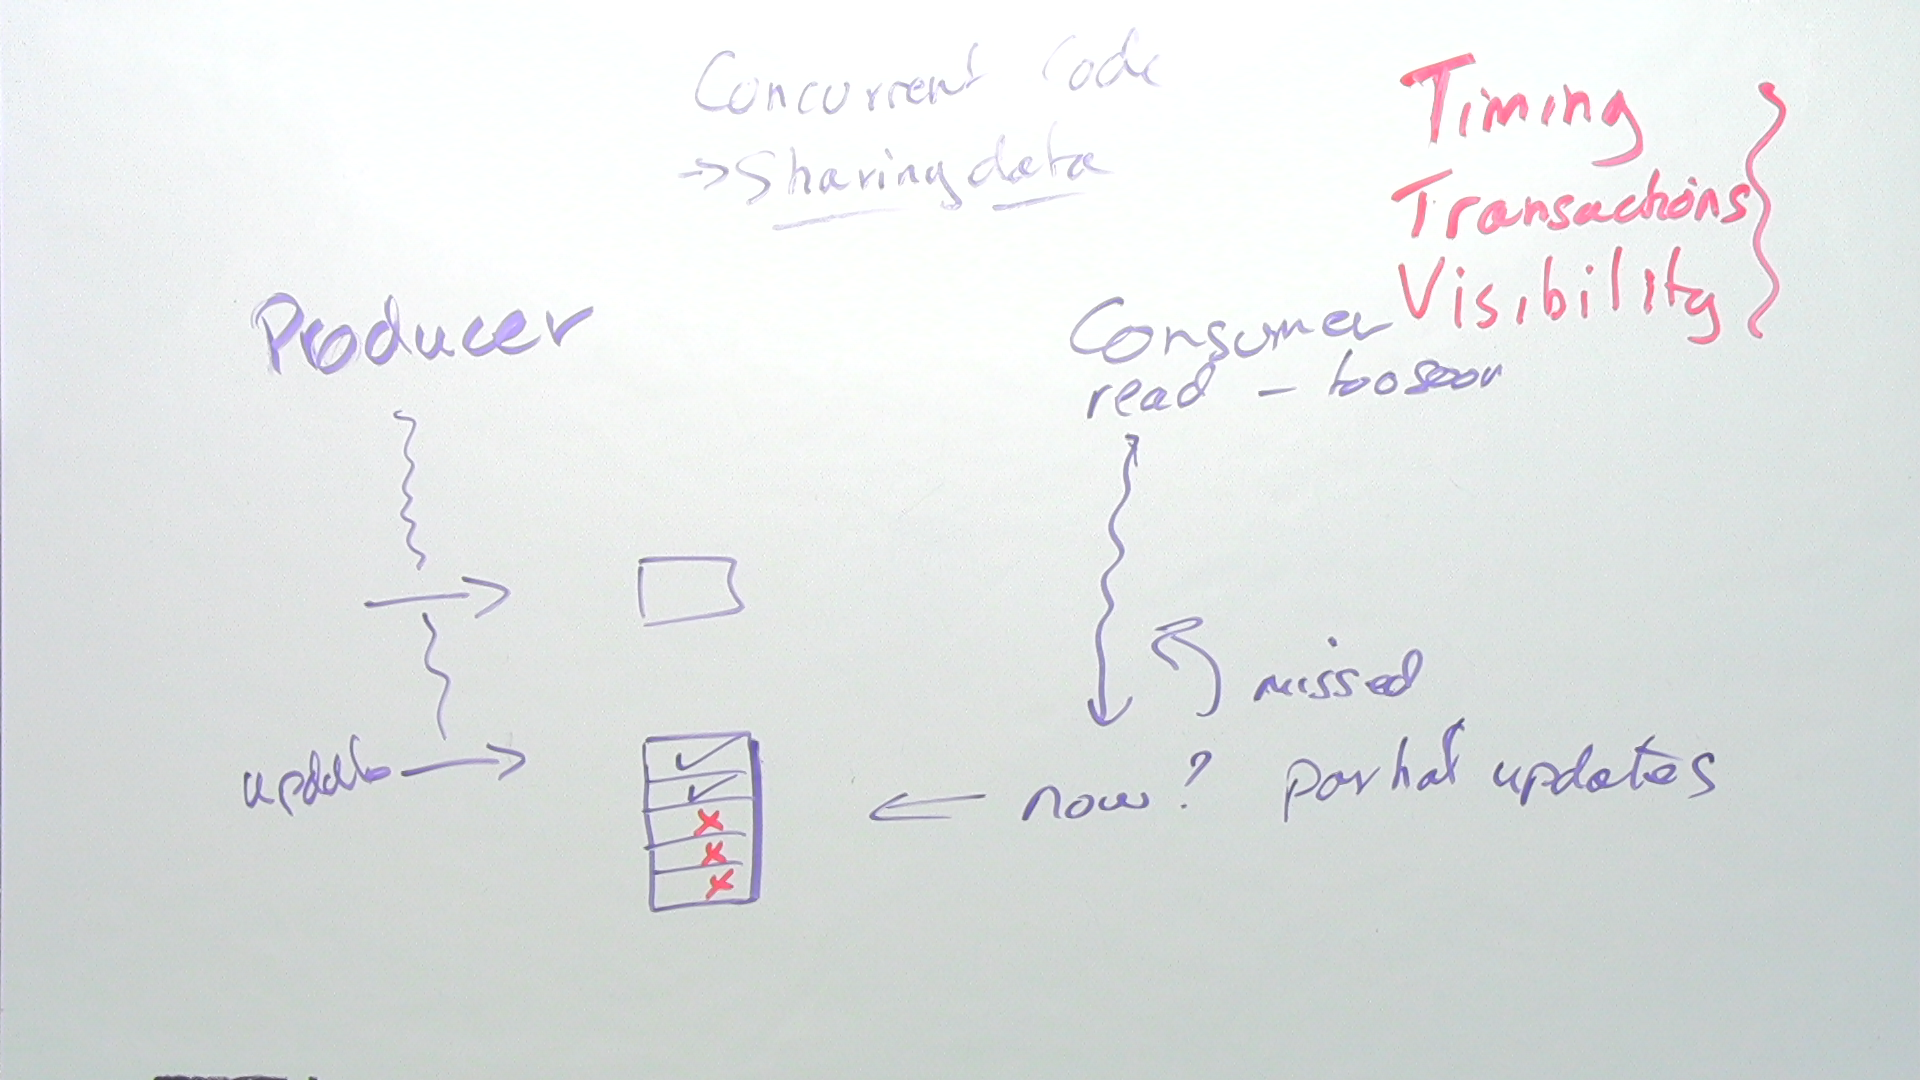 Concurrent Code
→ Sharing data
Timing
Transactions
Visibility
Producer
Consumer
read – too soon
missed
update
now? partial updates